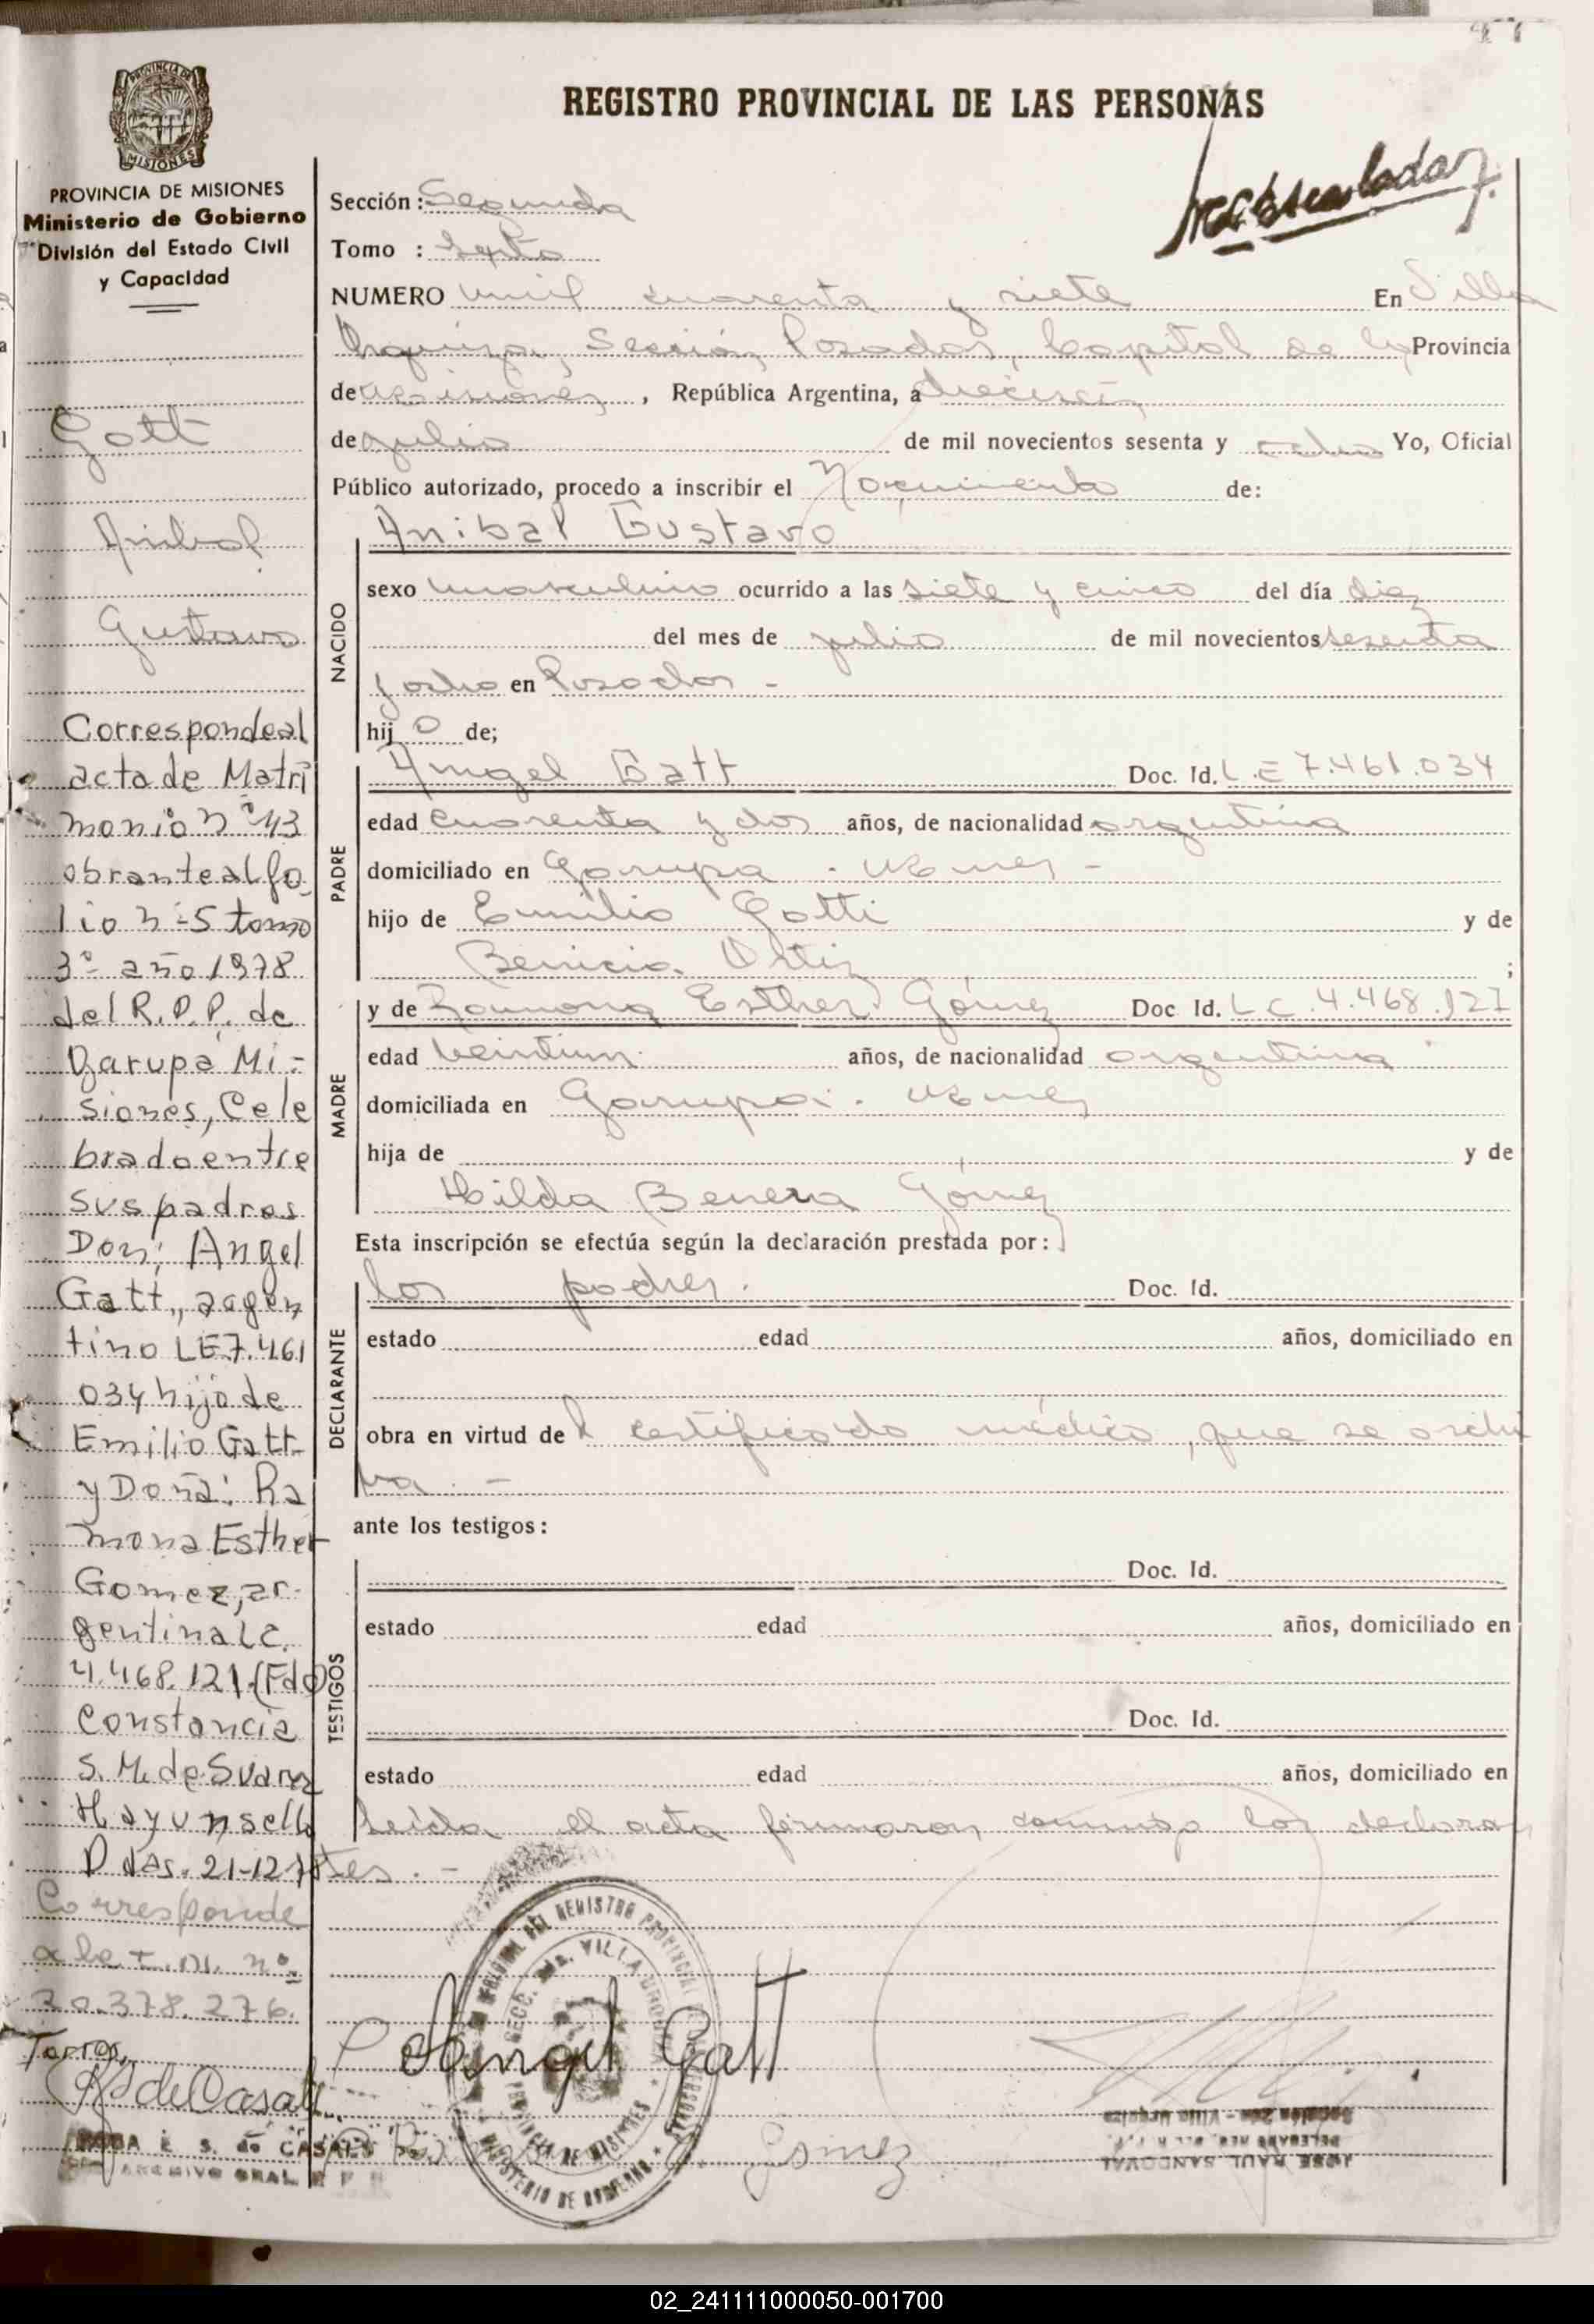 REGISTRO PROVINCIAL DE LAS PERSONAS
MISIONES
PROVINCIA DE MISIONES
Ministerio de Gobierno
División del Estado Civil
y Capacidad
Gatt
Anibal
Gustavo
Corresponde al
acta de Matri
monio nº 43
obrante al fo
lio nº 5 tomo
3º año 1978
del R.P.P. de
Garupá Mi-
siones, Cele
brado entre
sus padres
Don: Angel
Gatt, argen
tino LE 7.461
034 hijo de
Emilio Gatt
y Doña: Ra
mona Esther
Gomez, ar-
gentina LC.
4.468.121 (Fdo)
Constancia
S. M. de Suarez
Hay un sello
Pdas. 21-12-78
Corresponde
a la
20.378.276.
de Casals
E S. de CASALS
ARCHIVO GRAL R P P
Sección : Segunda
Tomo : Septo
NUMERO mil cuarenta y siete En Villa
Urquiza, Sección Posadas, Capital de la Provincia
de Misiones , República Argentina, a dieciseis
de julio de mil novecientos sesenta y ocho Yo, Oficial
Público autorizado, procedo a inscribir el Nacimiento de:
NACIDO
Anibal Gustavo
sexo masculino ocurrido a las siete y cinco del día diez
del mes de julio de mil novecientos sesenta
y ocho en Posadas -
hij o de;
PADRE
Angel Gatt Doc. Id. L.E 7.461.034
edad cuarenta y dos años, de nacionalidad argentina
domiciliado en Garupa . Mnes -
hijo de Emilio Gatti y de
Benicia Ortiz ;
MADRE
y de Ramona Esther Gómez Doc Id. L C. 4.468.127
edad veintiun años, de nacionalidad argentina
domiciliada en Garupa . Mnes
hija de y de
Hilda Gómez
Esta inscripción se efectúa según la declaración prestada por:
DECLARANTE
los padres. Doc. Id.
estado edad años, domiciliado en
obra en virtud de certificado médico, que se archi
va . -
ante los testigos:
TESTIGOS
Doc. Id.
estado edad años, domiciliado en
Doc. Id.
estado edad años, domiciliado en
Leida el acta firmaron conmigo los declaran
tes . -
Angel Gatt
Gomez
DEL REGISTRO PROVINCIAL
SECC. 2da. VILLA URQUIZA
PROVINCIA DE MISIONES
MINISTERIO DE GOBIERNO
JOSE RAUL SANDOVAL
Sección 2da - Villa Urquiza
02_241111000050-001700